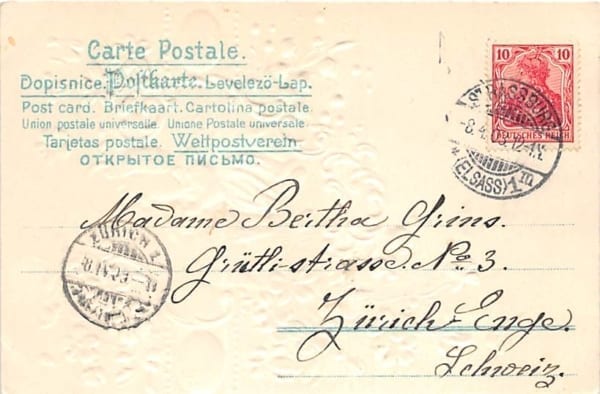 Carte Postale.
Dopisnice. Postkarte. Levelezö-Lap.
Post card. Briefkaart. Cartolina postale.
Union postale universelle. Unione Postale universale
Tarjetas postale. Weltpostverein
ОТКРЫТОЕ ПИСЬМО.
10 10
DEUTSCHES REICH
STRASSBURG
(ELSASS) 1
ZÜRICH
Madame Bertha Grins.
Grütli-strasse. No. 3.
Zürich-Enge.
Schweiz.